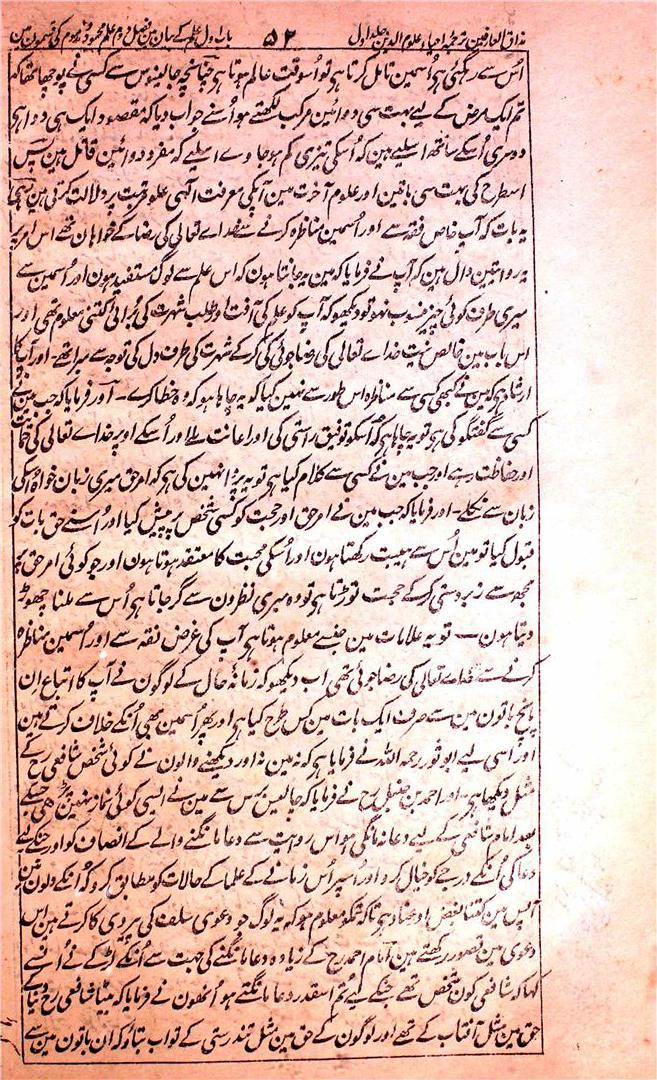 مذاق العارفین ترجمہ احیاء علوم الدین جلد اول ۵۲ باب اول علم کے بیان مین فصل دوم علم محمود و مذموم کی قسمون مین
اُس سے رہگئی ہو اُسمین تامل کرتا ہو تو اُسوقت عالم ہوتا ہو چنانچہ جالینوس سے کسی نے پوچھا تھا کہ
تم ایک مرض کے لیے بہت سی دوائین مرکب لکھتے ہو اُسنے جواب دیا کہ مقصود ایک ہی دوا ہو
دوسری اُسکے ساتھ اسلیے ہین کہ اُسکی تیزی کم ہو جاوے اسلیے کہ مفرد دوائین قاتل ہین پس
اسطرح کی بہت سی باتین اور علوم آخرت مین آپکی معرفت الٰہی علو مرتبت پر دلالت کرتی ہین رہی
یہ بات کہ آپ خاص فقہ سے اور اُسمین مناظرہ کرنے سے خداے تعالی کی رضا کے خواہان تھے اس امر پر
یہ روایتین دال ہین کہ آپ نے فرمایا کہ مین یہ جانتا ہون کہ اس علم سے لوگ مستفید ہون اور اُسمین سے
میری طرف کوئی چیز منسوب نہو تو دیکھو کہ آپ کو علم کی آفت اور طلب شہرت کی بُرائی کتنی معلوم تھی اور
اس باب مین خالص نیت خداے تعالی کی رضا جوئی کی کرکے شہرت کی طرف دل کی توجہ سے مبرا تھے - اور آپ کا
ارشاد ہو کہ مین نے کبھی کسی سے مناظرہ اس طور سے نہین کیا کہ یہ چاہا ہو کہ وہ خطا کرے - اور فرمایا کہ جب مین نے
کسی سے گفتگو کی ہو تو یہ چاہا ہو کہ اُسکو توفیق راستی کی اور اعانت ملے اور اُسکے اوپر خداے تعالی کی
اور حفاظت رہے اور جب مین نے کسی سے کلام کیا ہو تو یہ پروا نہین کی ہو کہ امر حق میری زبان خواہ اُسکی
زبان سے نکلے - اور فرمایا کہ جب مین نے امر حق اور حجت کو کسی شخص پر پیش کیا اور اُسنے حق بات کو
قبول کیا تو مین اُس سے ہیبت رکھتا ہون اور اُسکی محبت کا معتقد ہوتا ہون اور جو کوئی امر حق پر
مجھ سے زبردستی کرکے حجت توڑتا ہو تو وہ میری نظرون سے گر جاتا ہو اُس سے ملنا چھوڑ
دیتا ہون — تو یہ علامات ہین جنسے معلوم ہوتا ہو آپ کی غرض فقہ سے اور اُسمین مناظرہ
کرنے سے خداے تعالی کی رضا جوئی تھی اب دیکھو کہ زمانہ حال کے لوگون نے آپ کا اتباع اِن
پانچ باتون مین سے صرف ایک بات مین کس طرح کیا ہو اور پھر اُسمین بھی اُنکے خلاف کرتے ہین
اور اسی لیے ابو ثور رحمہ اللہ نے فرمایا ہو کہ نہ مین نے اور نہ دیکھنے والون نے کوئی شخص شافعی رح کے
مثل دیکھا ہو - اور احمد بن حنبل رح نے فرمایا کہ چالیس برس سے مین نے ایسی کوئی نماز نہین پڑھی جسکے
بعد امام شافعی کے لیے دعا نہ مانگی ہو اس روایت سے دعا مانگنے والے کے انصاف کو اور جنکے لیے
دعا کی اُنکے درجے کو خیال کرو اور اُسپر اُس زمانے کے علما کے حالات کو مطابق کرو کہ اُنکے دلون مین
آپس مین کتنا بغض اور عناد ہو تاکہ تمکو معلوم ہو کہ یہ لوگ جو دعوی سلف کی پیروی کا کرتے ہین اس
دعوی مین قصور رکھتے ہین امام احمد رح کے زیادہ دعا مانگنے کی جہت سے اُنکے لڑکے نے اُنسے
کہا کہ شافعی کون شخص تھے جنکے لیے تم اسقدر دعا مانگتے ہو اُنھون نے فرمایا کہ بیٹا شافعی رح دنیا کے
حق مین مثل آفتاب کے تھے اور لوگون کے حق مین مثل تندرستی کے تو اب بتاؤ کہ ان باتون مین سے